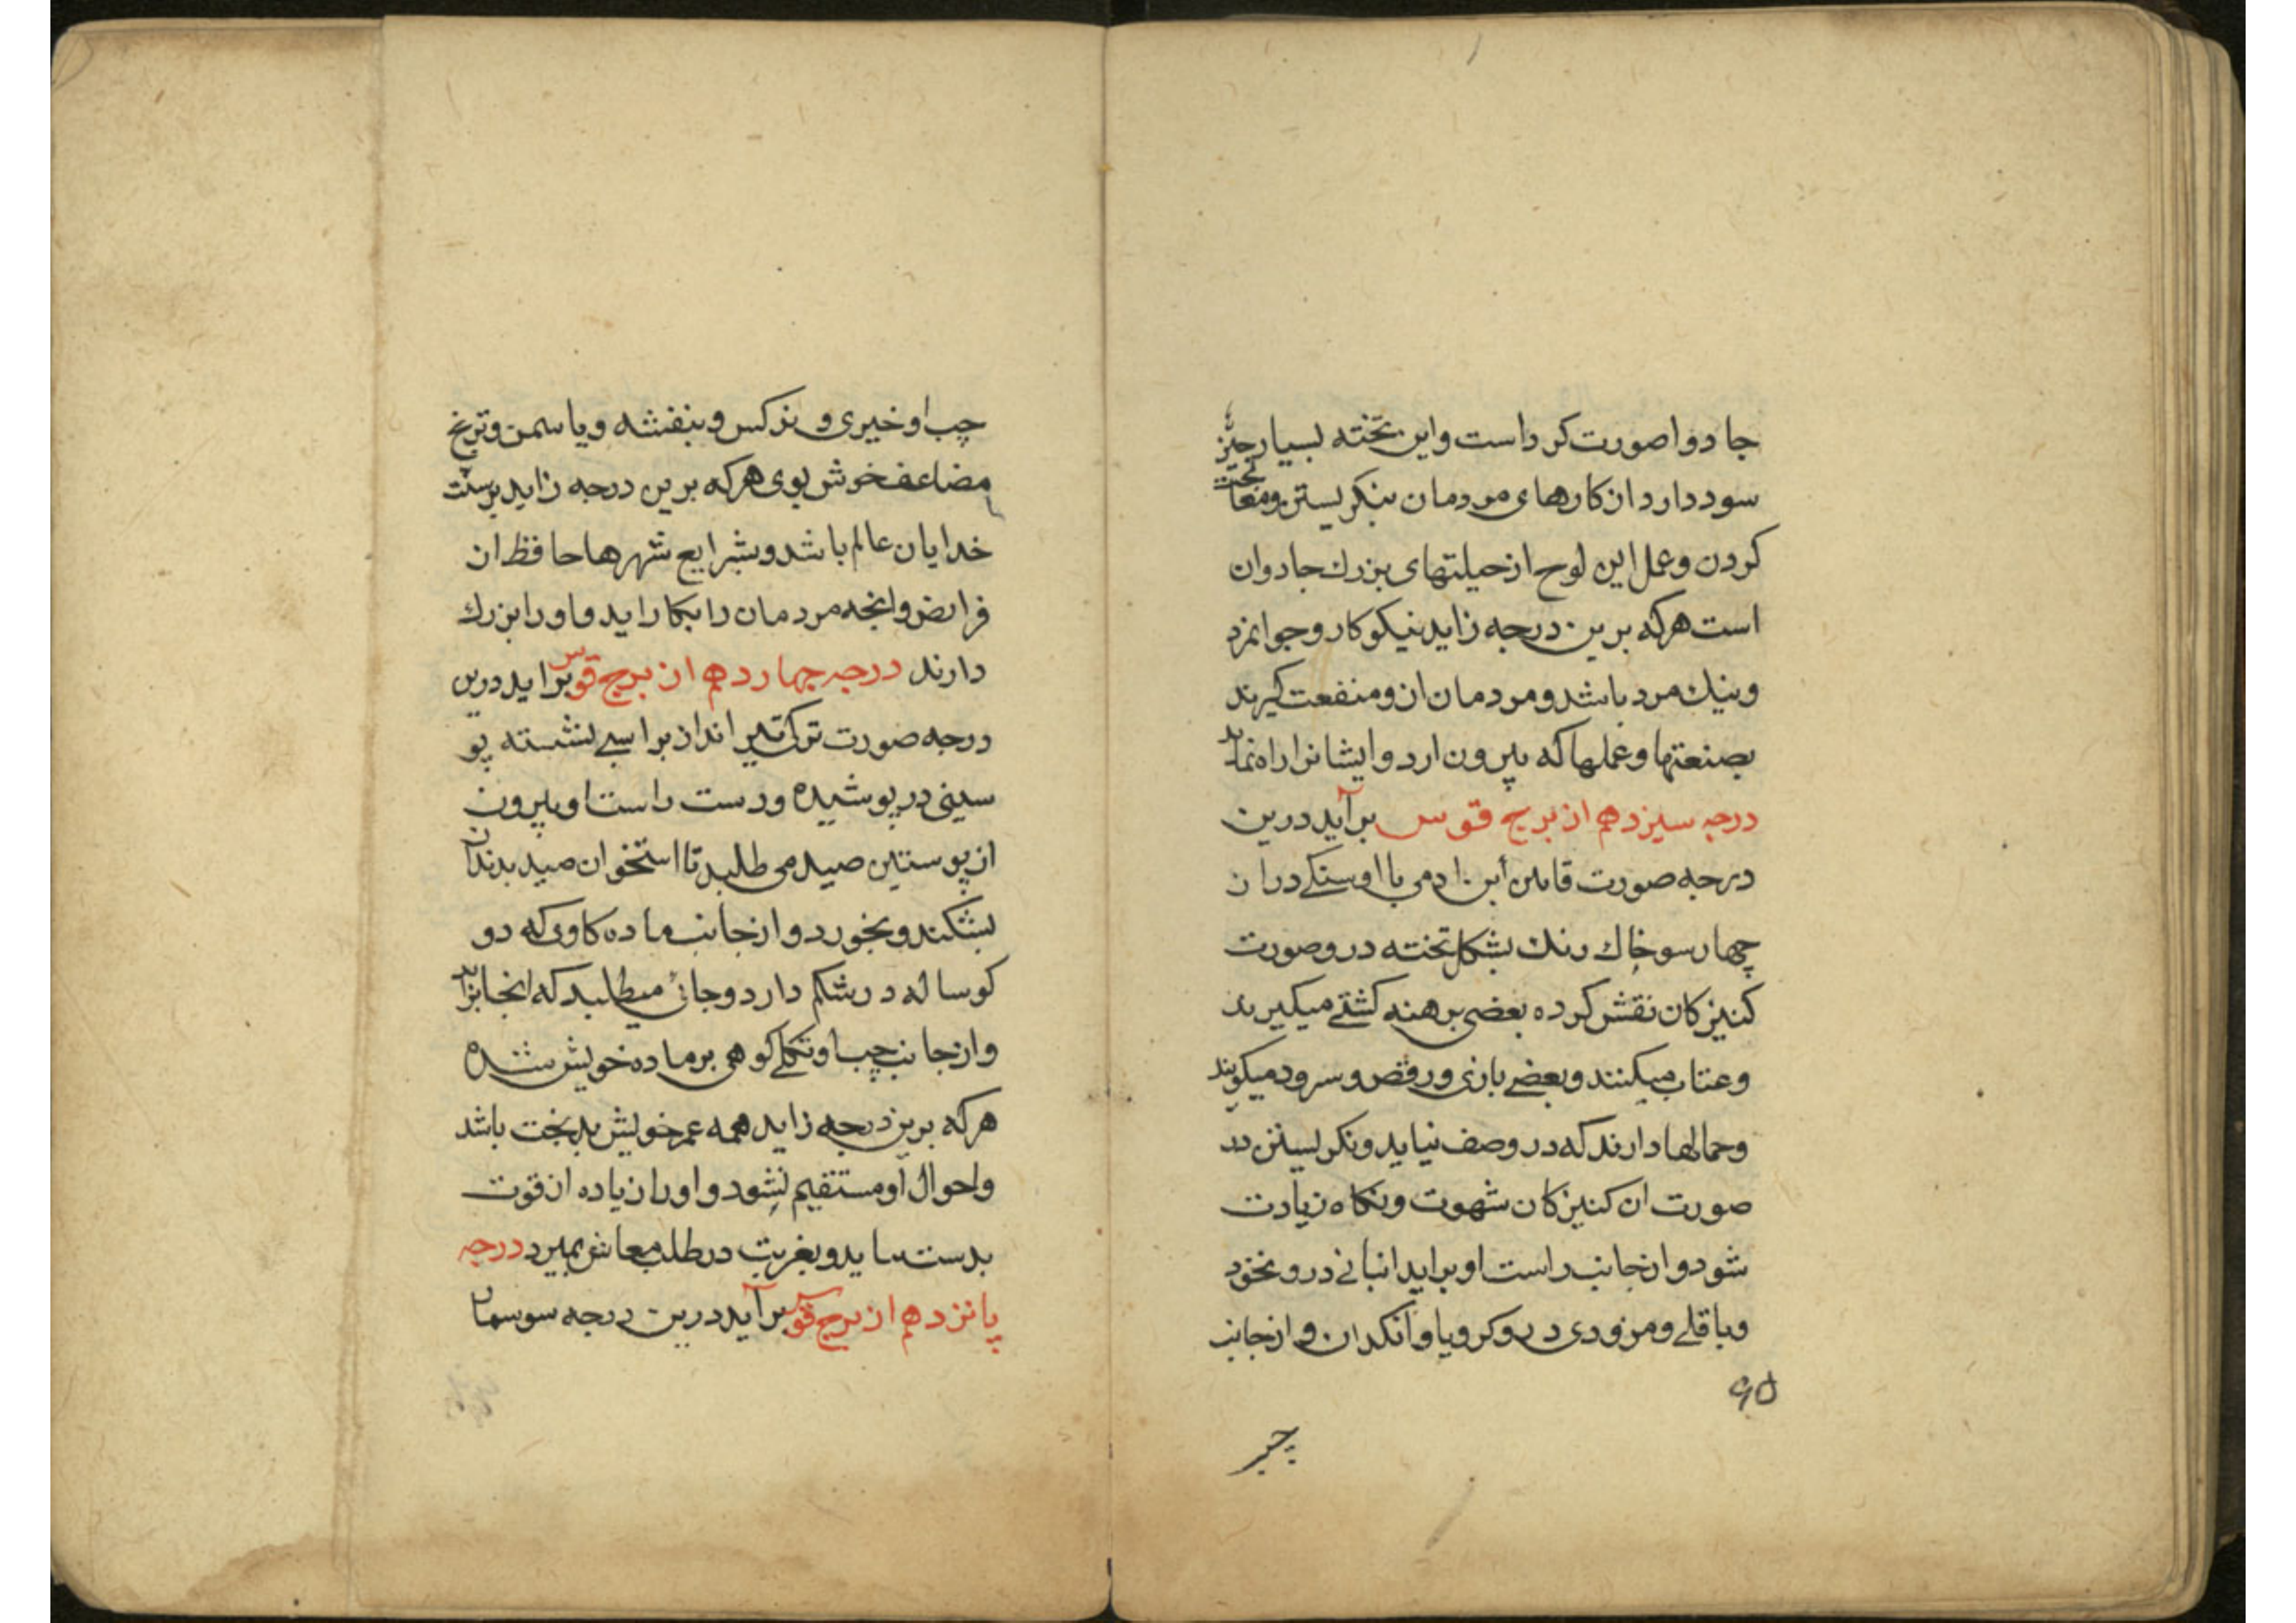 جادوا صورت کرداست و این تخته بسیار چیز
سود دارد از کارهای مردمان بنکریستن و معالجت
کردن و عمل این لوح از حیلتهای بزرك جادوان
است هرکه برین درجه زاید نیکوکار و جوانمرد
و نیك مرد باشد و مردمان از و منفعت کیرند
بصنعتها و عملها که بیرون ارد و ایشانرا راه نماید
درجه سیزدهم از برج قوس برآید درین
درجه صورت قاین ابن ادمی با او سنکی دران
چهارسو خاك رنك بشکل تخته درو صورت
کنیزکان نقش کرده بعضی برهنه کشتی میکیرند
و عتاب میکنند و بعضی بازی و رقص و سرود میکویند
و جمالها دارند که در وصف نیاید و نکریستن در
صورت ان کنیزکان شهوت و نکاه زیادت
شود و از جانب راست او براید انبانی درو نخود
و باقلی و مزوری درو کرویا و آنکدان و از جانب
۹۵
چپ
چپ او خیری و نرکس و بنفشه و یاسمن و ترنج
مضاعف خوش بوی هرکه برین درجه زاید پرست
خدایان عالم باشد و بشرایع شهرها حافظ ان
فرایض و انچه مردمان را بکار اید و او را بزرك
دارند درجه چهاردهم از برج قوس براید درین
درجه صورت ترك تیر انداز بر اسبی نشسته پو
سینی در پوشیده و دست راست او بیرون
از پوستین صید می طلبد تا استخوان صید بدندان
بشکند و بخورد و از جانب ماده کاوی که دو
کوساله در شکم دارد و جائ میطلبد که انجا بزاید
و از جانب چپ او تکلی کوهی بر ماده خویش شده
هرکه برین درجه زاید همه عمر خویش بدبخت باشد
و احوال او مستقیم نشود و او را زیاده از قوت
بدست نیاید و بغربت در طلب معاش بمیرد درجه
پانزدهم از برج قوس برآید درین درجه سوسمار